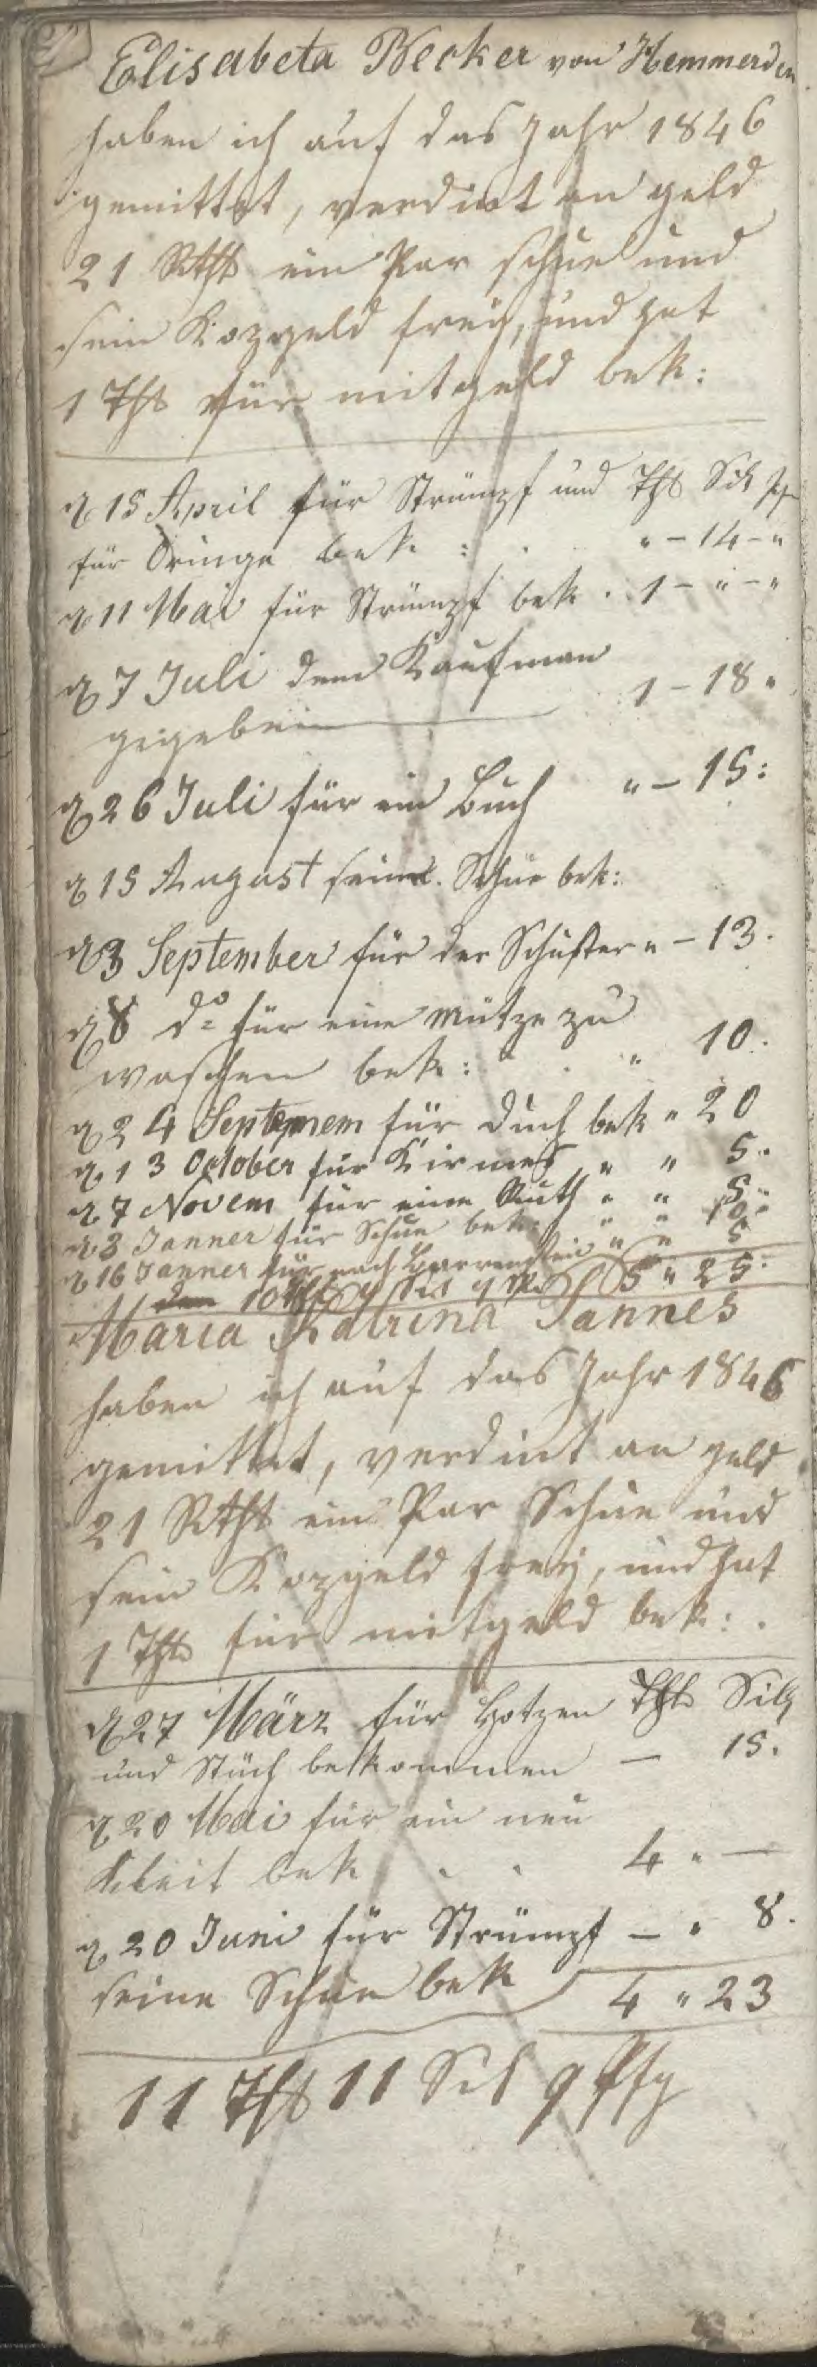 Elisabeta Becker von Hemmerden
haben ich auf das Jahr 1846
gemittet, verdint an geld
21 Rthl ein Par schue und
sein Kopgeld frey, und hat
1 Thl für mitgeld bek:
d 15 April für Strümpf und Thl Sil
für bek : . " - 14 - "
d 11 Mai für Strümpf bek . 1 - " - "
d 7 Juli dem Kaufman
gegeben 1 - 18 "
d 26 Juli für ein Buch " - 15 :
d 15 August seine Schue bek:
d 3 September für der Schuster " - 13 .
d 8 do für eine Mütze zu
waschen bek : . " 10 .
d 24 Septemem für duch bek " 20
d 13 October für Kirmes " " 5 "
d 7 Novem für eine " " 5 "
d 3 Janner für Schue bek: " " 10 "
d 16 Janner für nach " " 5
10 Thl Sil 9 5 " 25 .
Maria Katrina Jannes
haben ich auf das Jahr 1846
gemittet, verdint an geld
21 Rthl ein Par Schue und
sein Kopgeld frey, und hat
1 Thl für mitgeld bek: .
d 27 März für Hotzen Thl Silg
und Stüch bekommen - 15 .
d 20 Mai für ein neu
Kleit bek . . 4 " -
d 20 Juni für Strümpf - " 8 .
seine Schue bek 4 " 23
11 Thl 11 Sil 9 Pfg